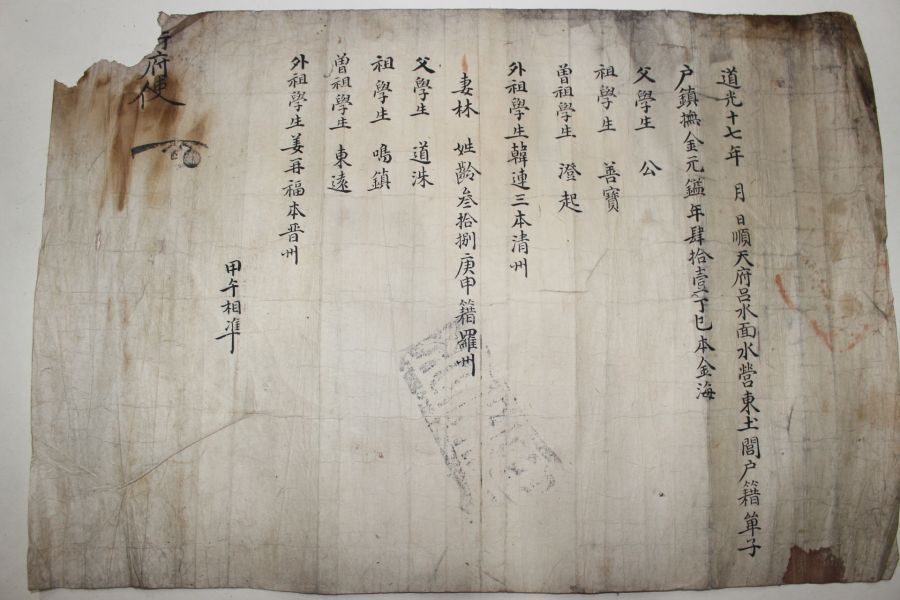 道光十七年 月 日順天府呂水面水營東土閭户籍單子
户鎮撫金元鎰年肆拾壹丁巳本金海
父學生 公
祖學生 善寶
曾祖學生 澄起
外祖學生韓連三本清州
妻林 姓齡叁拾捌庚申籍羅州
父學生 道洙
祖學生 鳴鎮
曾祖學生 東遠
外祖學生姜再福本晋州
甲午相準
府使